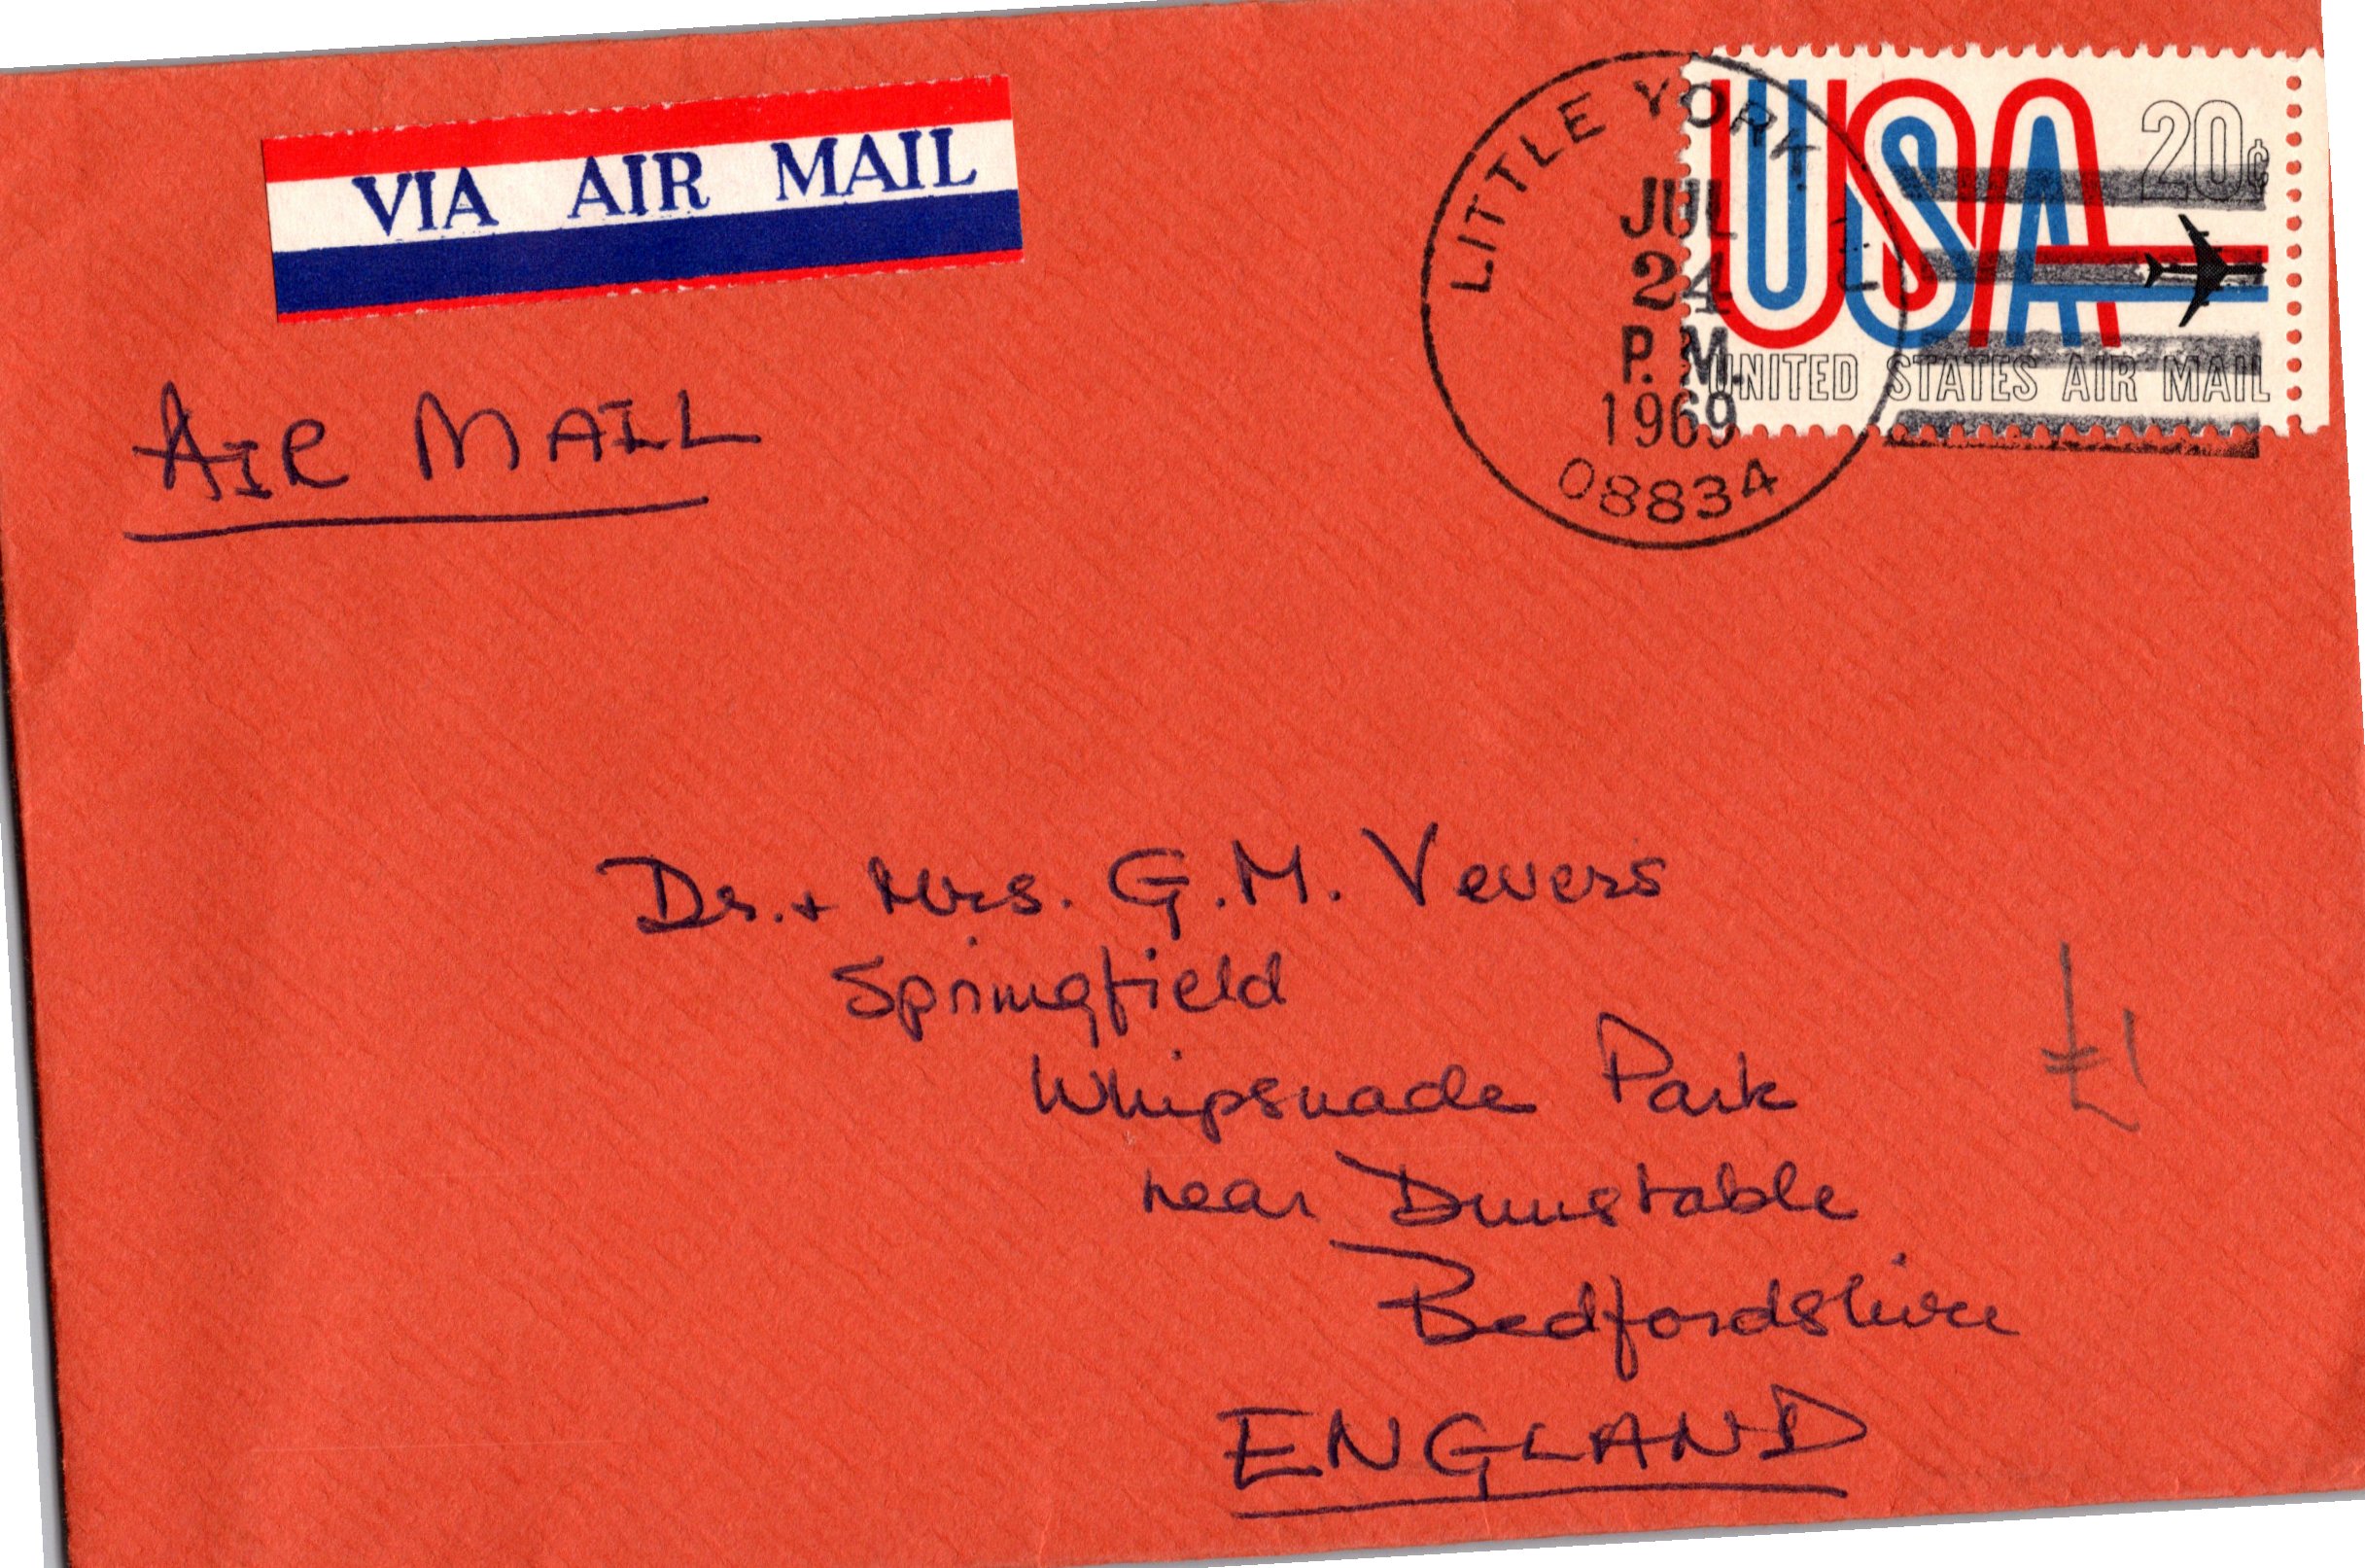 VIA AIR MAIL
LITTLE YORK
JUL
24
P.M.
1969
08834
USA
20¢
UNITED STATES AIR MAIL
AIR MAIL
Dr. + Mrs. G.M. Vevers
Springfield
Whipsnade Park
near Dunstable
Bedfordshire
ENGLAND
£1